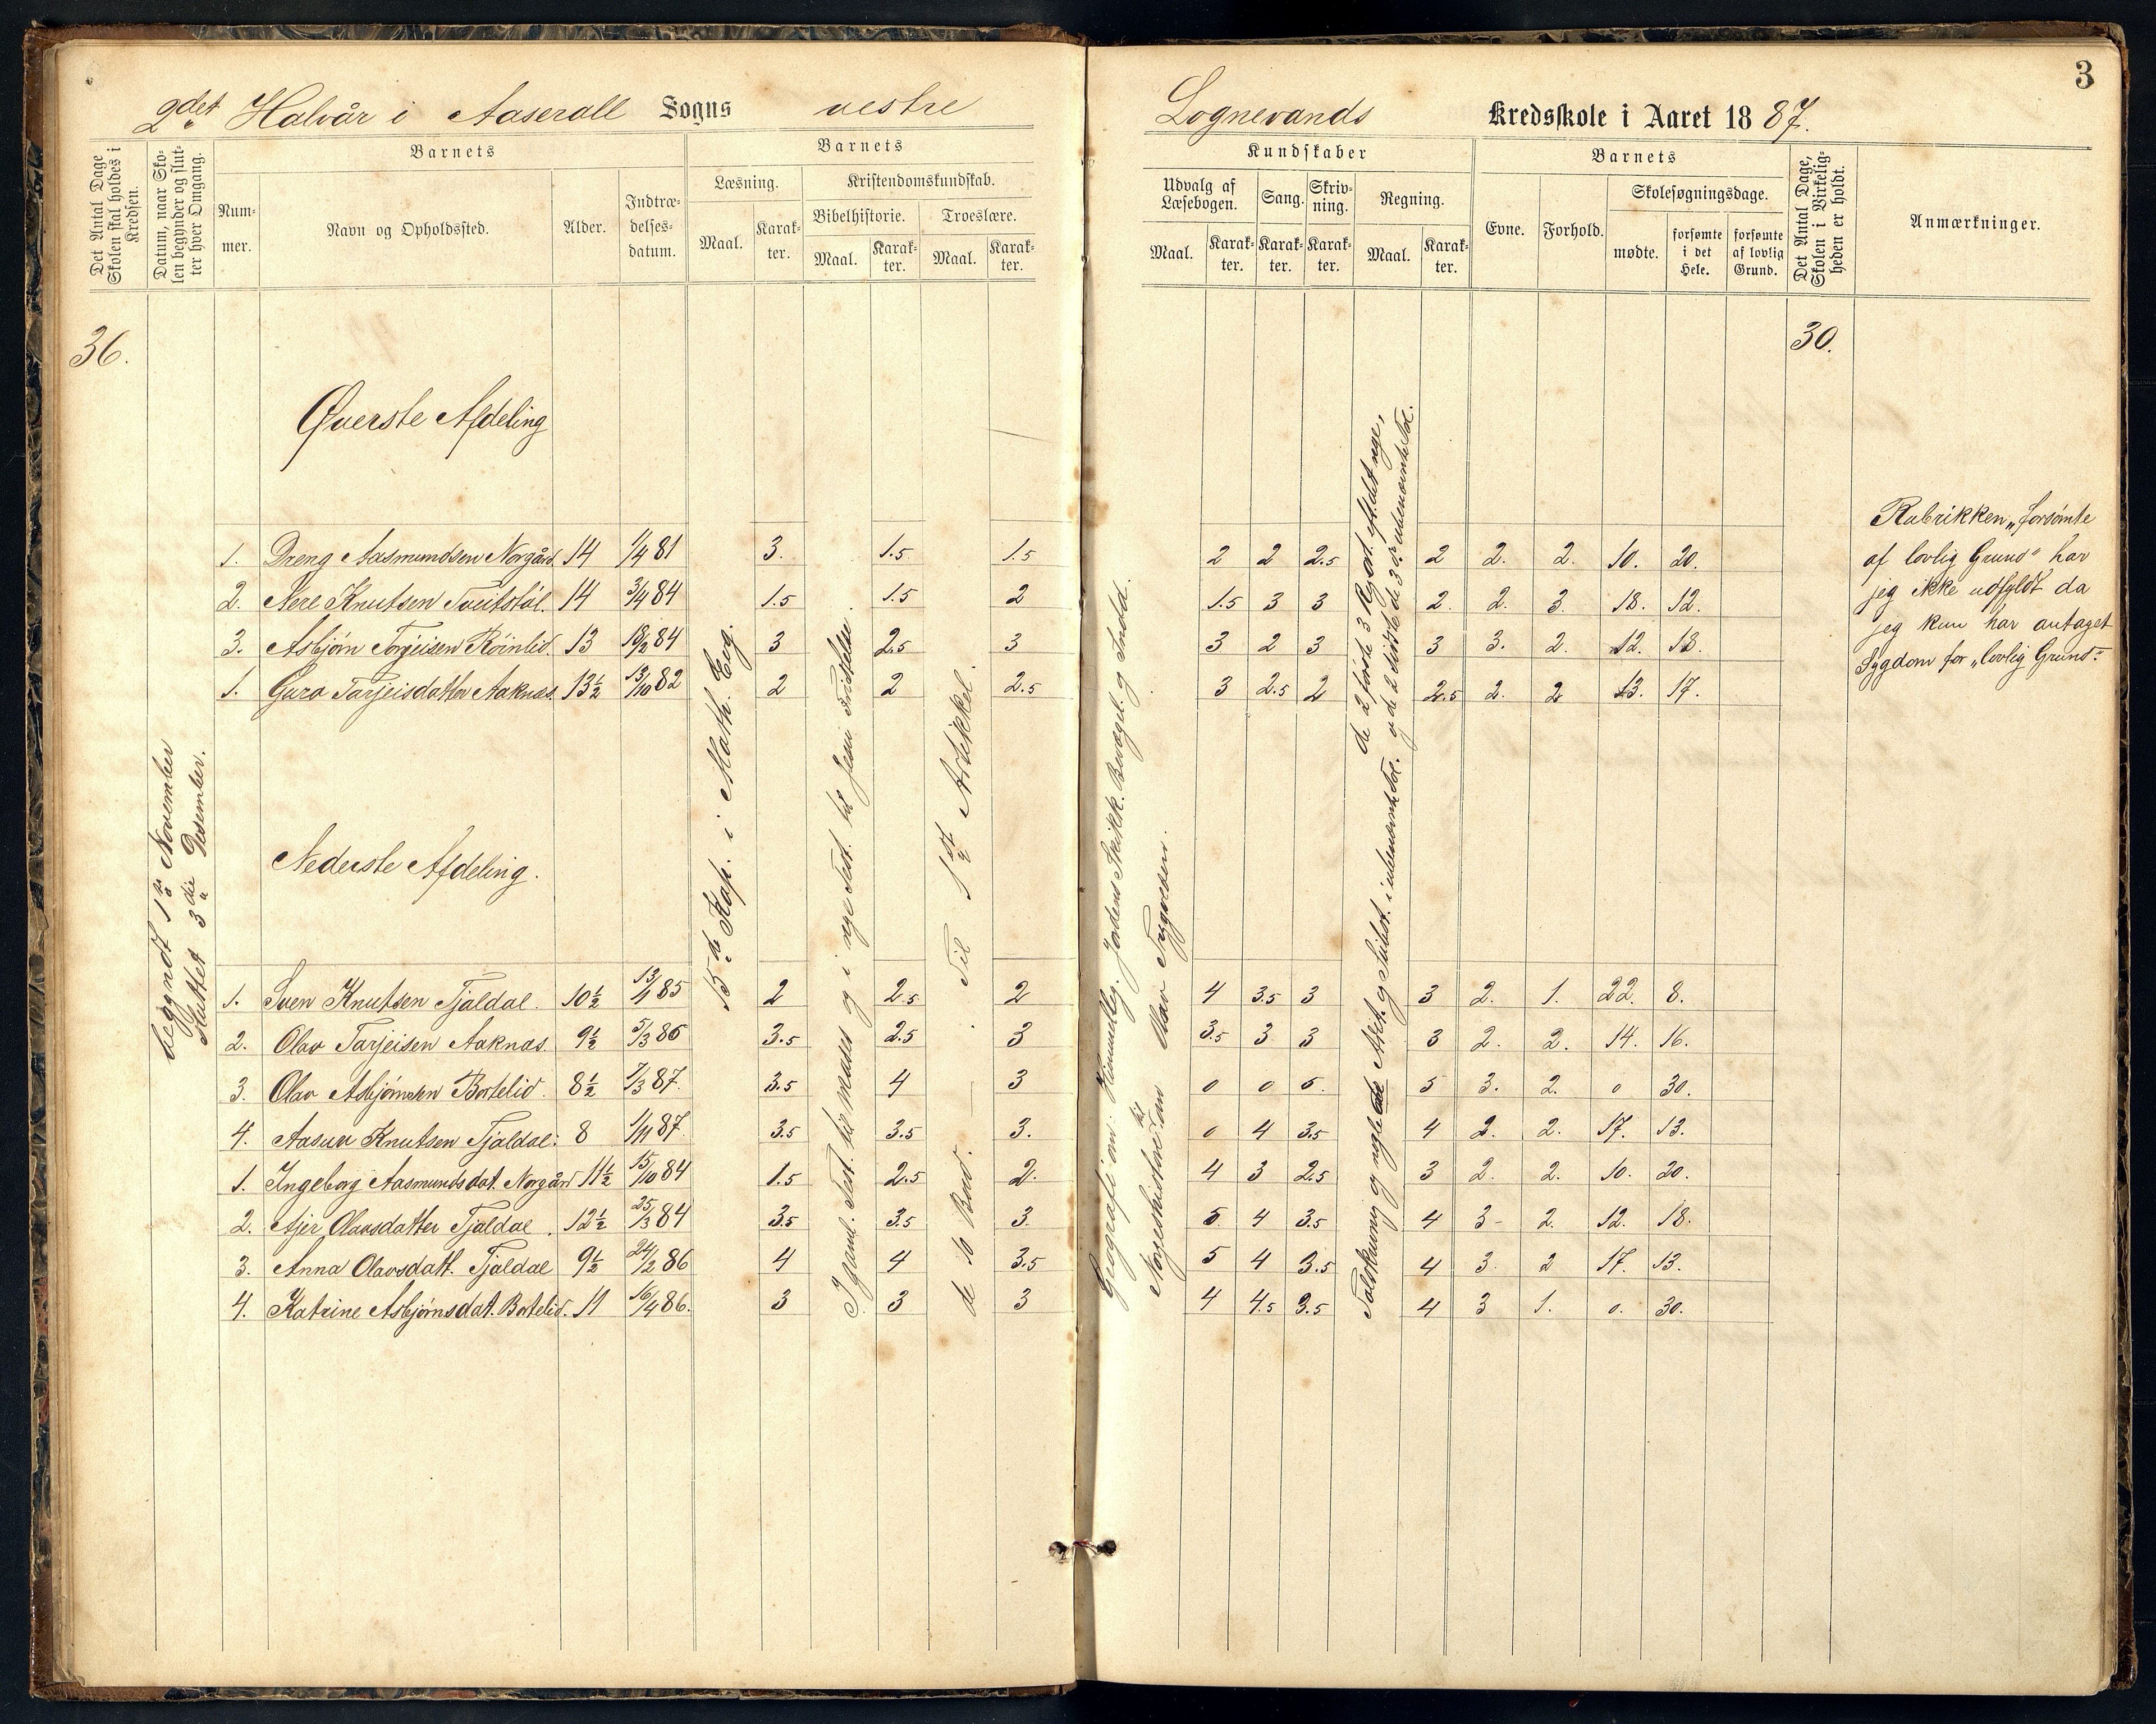 3
2det Halvår i Aaseral Sogns vestre Lognevands Kredsskole i Aaret 1887.
Det Antal Dage Skolen skal holdes i Kredsen.
Datum, naar Skolen begynder og slutter hver Omgang.
Barnets
Nummer.
Navn og Opholdssted.
Alder.
Indtrædelsesdatum.
Barnets
Læsning.
Maal.
Karakter.
Kristendomskundskab.
Bibelhistorie.
Maal.
Karakter.
Troeslære.
Maal.
Karakter.
Kundskaber
Udvalg af Læsebogen.
Maal.
Karakter.
Sang.
Karakter.
Skrivning.
Karakter.
Regning.
Maal.
Karakter.
Barnets
Evne.
Forhold.
Skolesøgningsdage.
mødte.
forsømte i det Hele.
forsømte af lovlig Grund.
Det Antal Dage, Skolen i Virkeligheden er holdt.
Anmærkninger.
36.
30.
begyndt 1ste November
sluttet 3die Desember.
Øverste Afdeling
1. Dreng Aasmundsen Norgård 14 1/4 81 3. 1.5 1.5 2 2 2.5 2 2. 2. 10. 20.
2. Nere Knutsen Tveitstøl. 14 3/4 84 1.5 1.5 2 1.5 3 3 2. 2. 3. 18. 12.
3. Asbjørn Torjeisen Röinlid. 13 18/2 84 3 2.5 3 3 2 3 3 3. 2. 12. 18.
1. Guro Tarjeisdatter Aaknas. 13½ 13/10 82 2 2 2.5 3 2.5 2 2.5 2. 2 13. 17.
Nederste Afdeling.
1. Sven Knutsen Tjaldal. 10½ 13/4 85 2 2.5 2 4 3.5 3 3 2. 1. 22. 8.
2. Olav Tarjeisen Aaknas. 9½ 5/3 86 3.5 2.5 3 3.5 3 3 3 2. 2. 14. 16.
3. Olav Asbjørnsen Bortelid. 8½ 7/3 87. 3.5 4 3 0 0 5. 5 3. 2. 0 30.
4. Aasuv Knutsen Tjaldal. 8 1/11 87. 3.5 3.5 3. 0 4 3.5 4 2. 2. 17. 13.
1. Ingeborg Aasmundsdat. Norgård 11½ 15/10 84 1.5 2.5 2. 4 3 2.5 3 2. 2. 10. 20.
2. Ajer Olavsdatter Tjaldal. 12½ 25/3 84 3.5 3.5 3. 5. 4 3.5 4 3- 2. 12. 18.
3. Anna Olavsdatt. Tjaldal 9½ 24/2 86 4 4 3.5 5 4 3.5 4 3. 2 17. 13.
4. Katrine Asbjørnsdat. Bortelid. 11 16/4 86. 3 3 3 4 4.5 3.5 4 3 1. 0. 30.
15de Kap. i Math. Evg.
I gaml. Test. til Moses og i nye Test. til Jesu Fristelse.
de 10 Bud. — Til 1ste Artikkel.
Geografi om: Himmelleg. Jordens Skikk. Bevægel. g Indd.
Norgeshistorie: Fra til Olav Trygveson.
de 2 første 3 Rgsart. eft. det nye,
og de 2 sidste de 3 i ubenævnte Tal.
Talskrivning og nogle Adet. g Subst. i ubenævnte Tal.
Rubrikken „forsömte
af lovlig Grund" har
jeg ikke udfyldt da
jeg kun har antaget
Sygdom for „lovlig Grund".